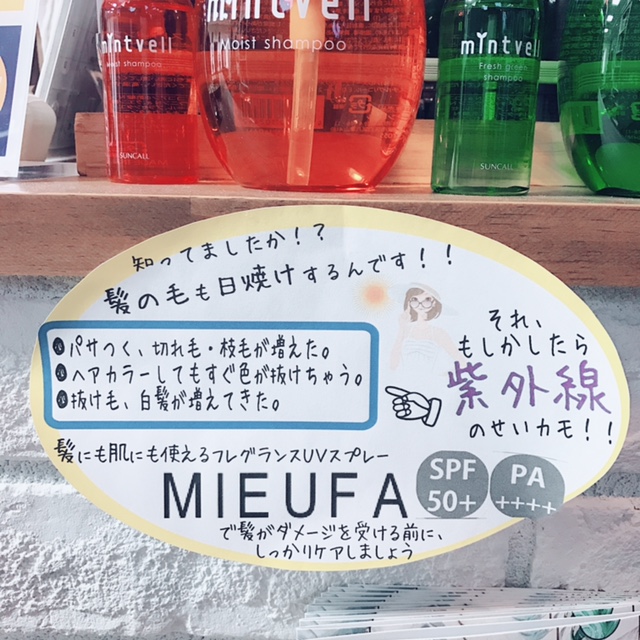 mintvell
Moist shampoo
SUNCALL
mintvell
Moist shampoo
mintvell
Fresh green
shampoo
SUNCALL
知ってましたか！？
髪の毛も日焼けするんです！！
●パサつく、切れ毛・枝毛が増えた。
●ヘアカラーしてもすぐ色が抜けちゃう。
●抜け毛、白髪が増えてきた。
それ、
もしかしたら
紫外線
のせいカモ！！
髪にも肌にも使えるフレグランスUVスプレー
MIEUFA
SPF
50+
PA
++++
で髪がダメージを受ける前に、
しっかりケアしましょう